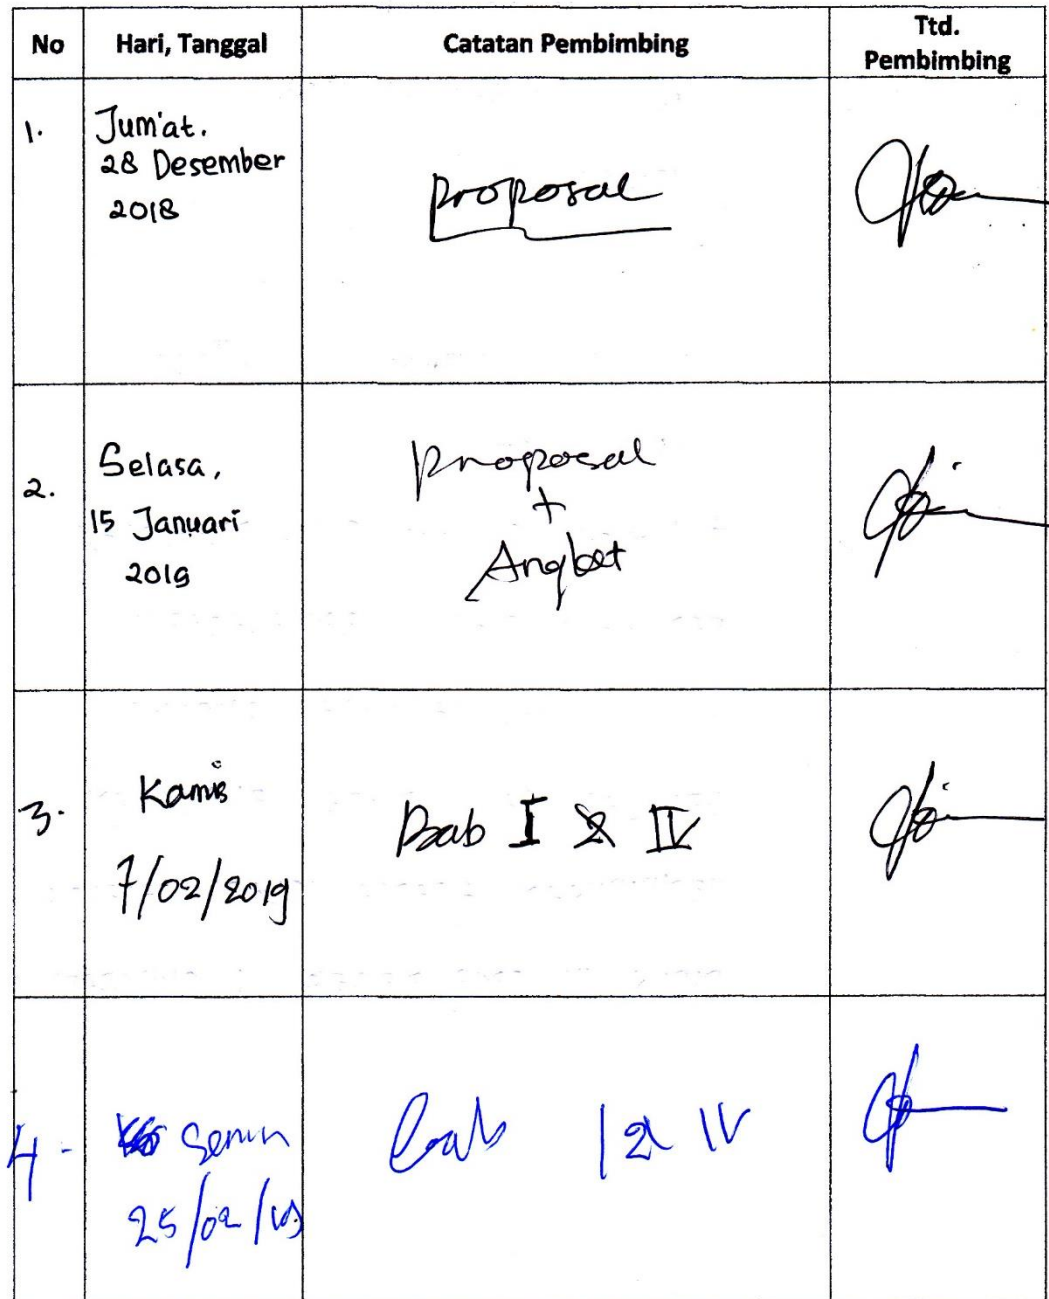 No Hari, Tanggal Catatan Pembimbing Ttd. Pembimbing
1. Jum'at. 
28 Desember
2018
proposal
2. Selasa,
15 Januari
2019
proposal
+
Angket
3. Kamis
7/02/2019
Bab I & IV
4. Senin
25/02/19
bab I & IV